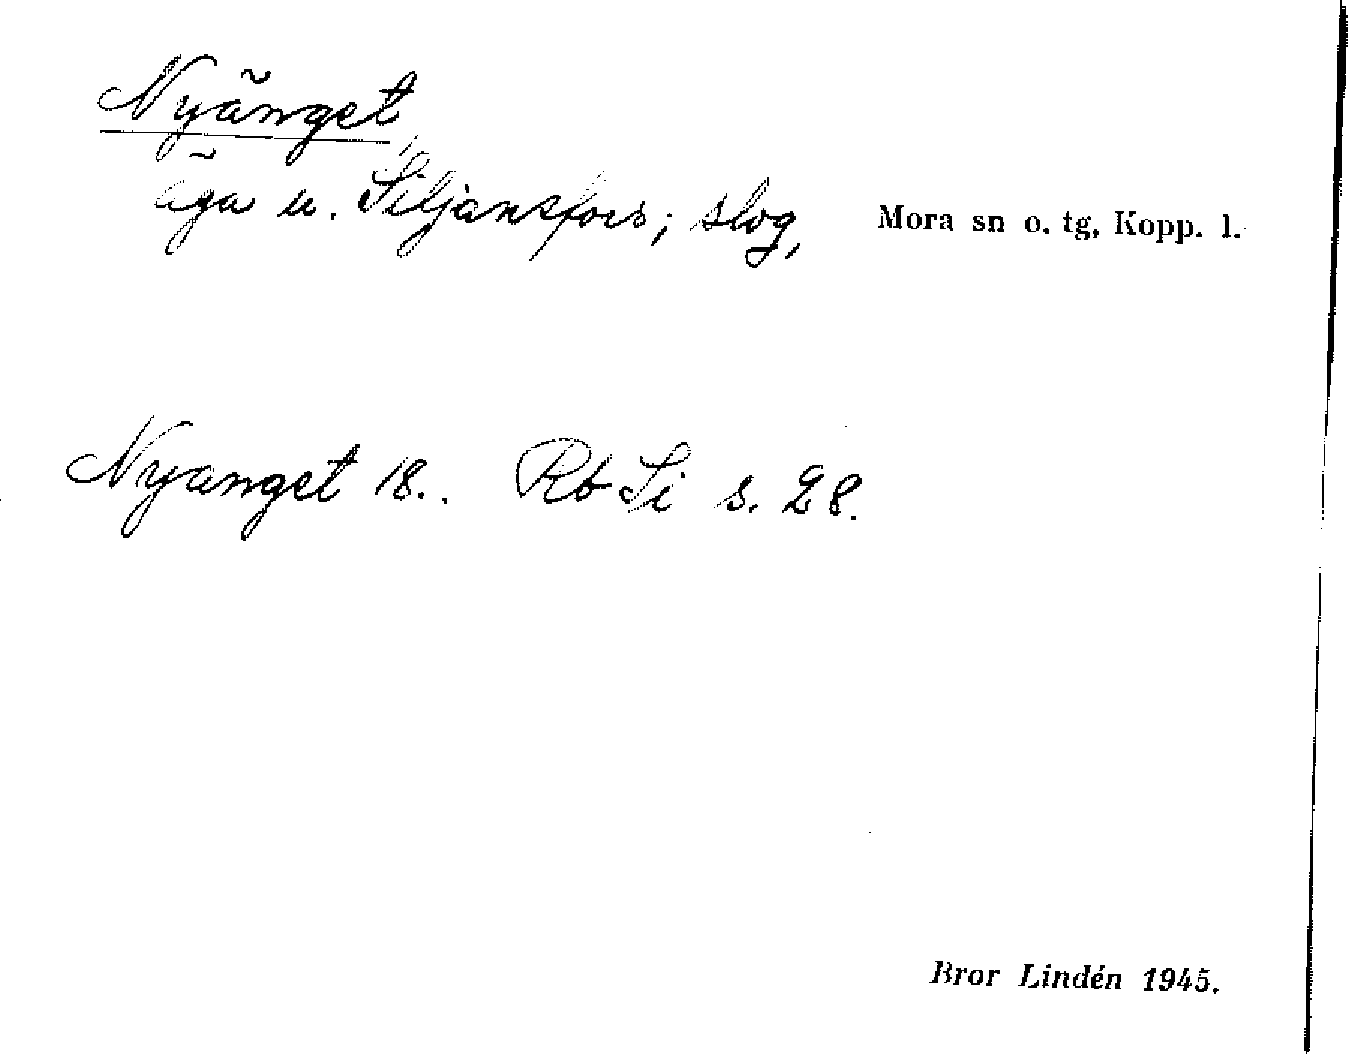 Nyänget,
äga u. Siljansfors; slog, Mora sn o. tg, Kopp. l.
Nyanget 18.. Rb Si s. 28.
Bror Lindén 1945.